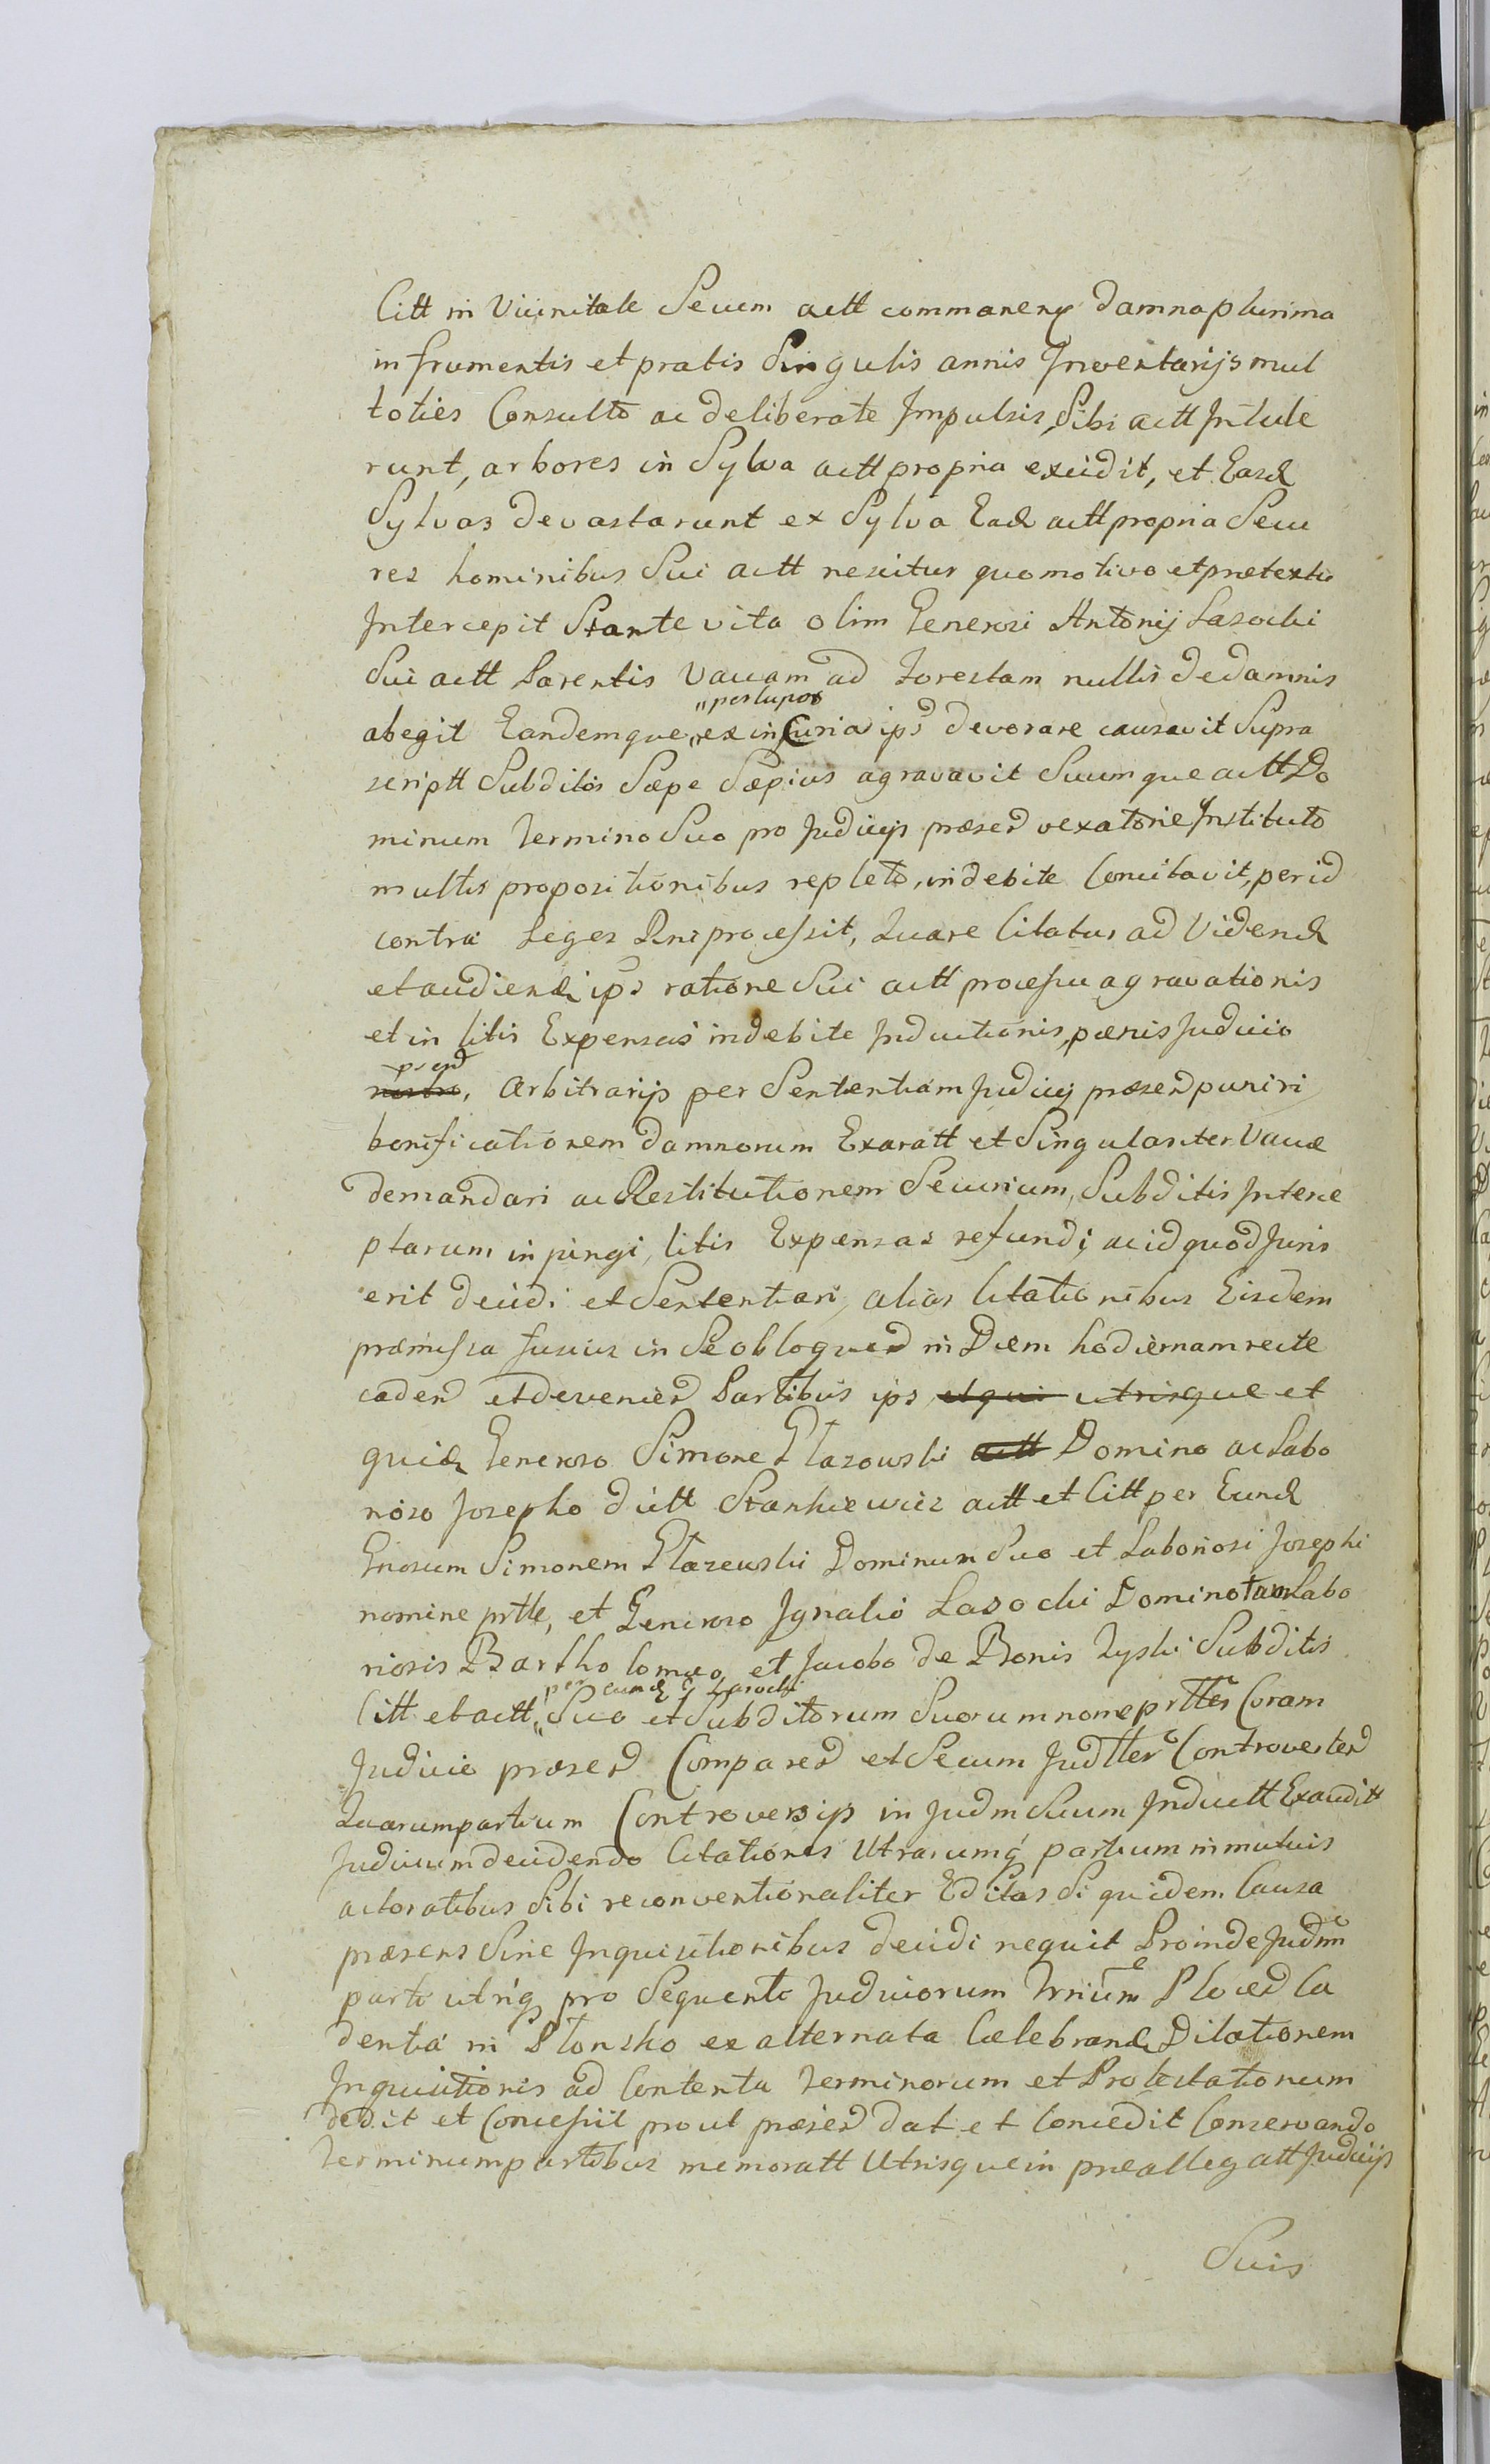 Citt in Vicinitate Secum actt commanenꝫ damna plurima
in frumentis et pratis Singulis annis Inventarijs mul
toties Consulto ac deliberate Impulsis, Sibi actt Intule
runt, arbores in Sylva actt propria excidit, et Easd
Sylvas devastarunt ex Sylva Ead actt propria Secu
res hominibus Sui actt nescitur quo motivo et prætextu
Intercepit Stante vita olim Generosi Antonij Lasocki
Sui actt Parentis Vaccam ad Forestam nullis de damnis
abegit Eandemque „ex in Curia ips devorare causavit Supra
„per lupos
scriptt Subditos Sæpe Sæpius agravavit Suumque actt Do
minum Termino Suo pro Judicijs præsen vexatorie Instituto
multis propositionibus repleto, indebite Concitavit, per id
contra Leges Rni processit, Quare Citatus ad Vidend
et audiend ips ratione Sui actt processu agravationis
et in litis Expensas indebite Inductionis, pœnis Judicio
nostro, Arbitrarijs per Sententiam Judicij præsen puniri
psen
bonificationem damnorum Exaratt et Singulariter Vaccæ
demandari ac Restitutionem Securium, Subditis Interce
ptarum injungi, litis Expensas refundi, ac id quod Juris
erit decidi et Sententiari, alias Citationibus Eisdem
præmissa fusius in Se obloquen in Diem hodiernam recte
caden et devenien Partibus ips et qui utrisque et
quid Generoso Simone Płazowski actt Domino ac Labo
rioso Josepho dictt Stankiewicz actt et Citt per Eund
Gnosum Simonem Płazewski Dominum Suo et Laboriosi Josephi
nomine prtte, et Generoso Ignatio Lasocki Domino tum Labo
riosis Bartholomæo et Jacobo de Bonis Łyski Subditis
Citt et actt „Suo et Subditorum Suorum nomẽ prttes Coram
per eund G Lasocki
Judicio præsen Comparen et Secum Judtter Controverten
Quarum partium Controversijs in Judm Suum Inductt Exauditt
Judicium decidendo Citationes Utrarumq partium in mutuis
actoratibus Sibi reconventionaliter Editas Siquidem Causa
præsens Sine Inquisitionibus decidi nequit Proinde Judm
parti utriq pro Sequenti Judiciorum Trium Plocen Ca
dentia in Płonsko ex alternata Celebrand Dilationem
Inquisitionis ad Contenta Terminorum et Protestationum
dedit et Concessit prout præsen dat et Concedit Conservando
Terminum partibus memoratt Utrisque in præallegatt Judicijs
Suis